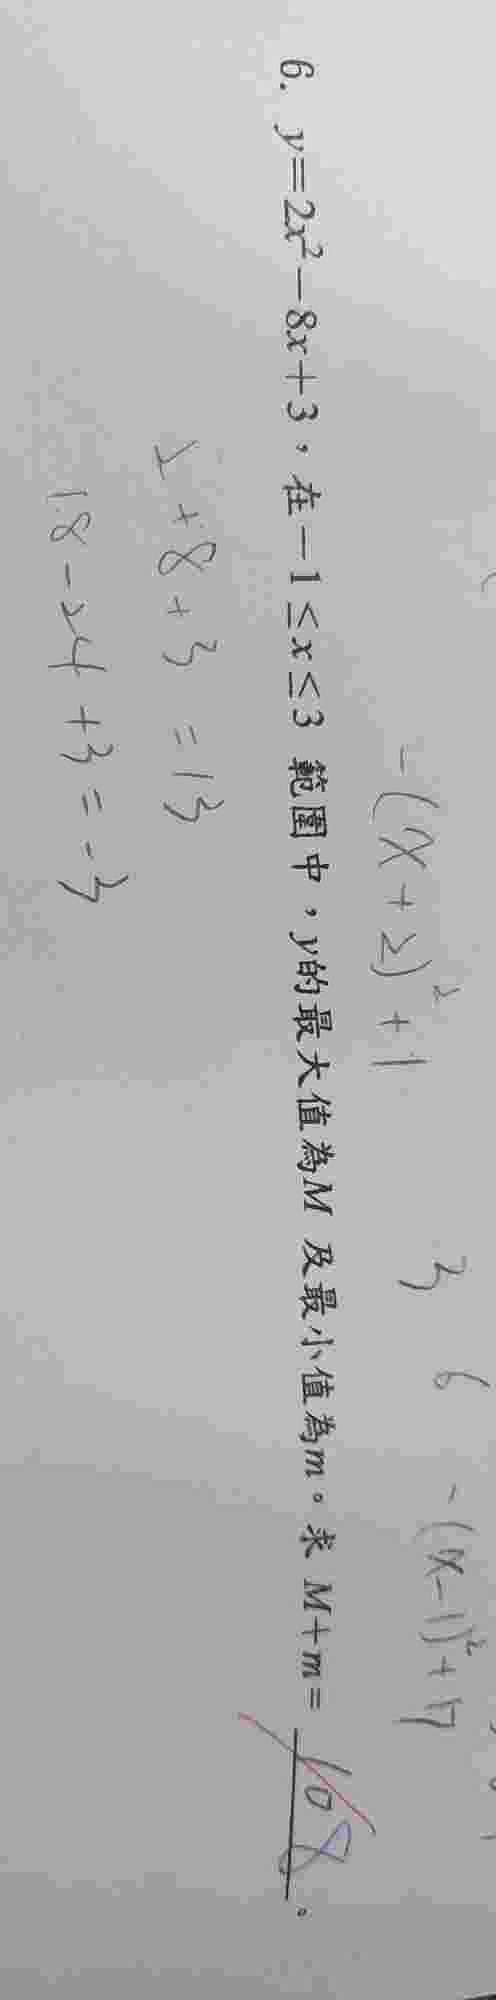 -(x+2)²+1
3
6
-(x-1)²+17
6. y=2x²-8x+3,在-1≤x≤3 範圍中,y的最大值為M 及最小值為m。求 M+m= 10 8 。
2+8+3=13
18-24+3=-3